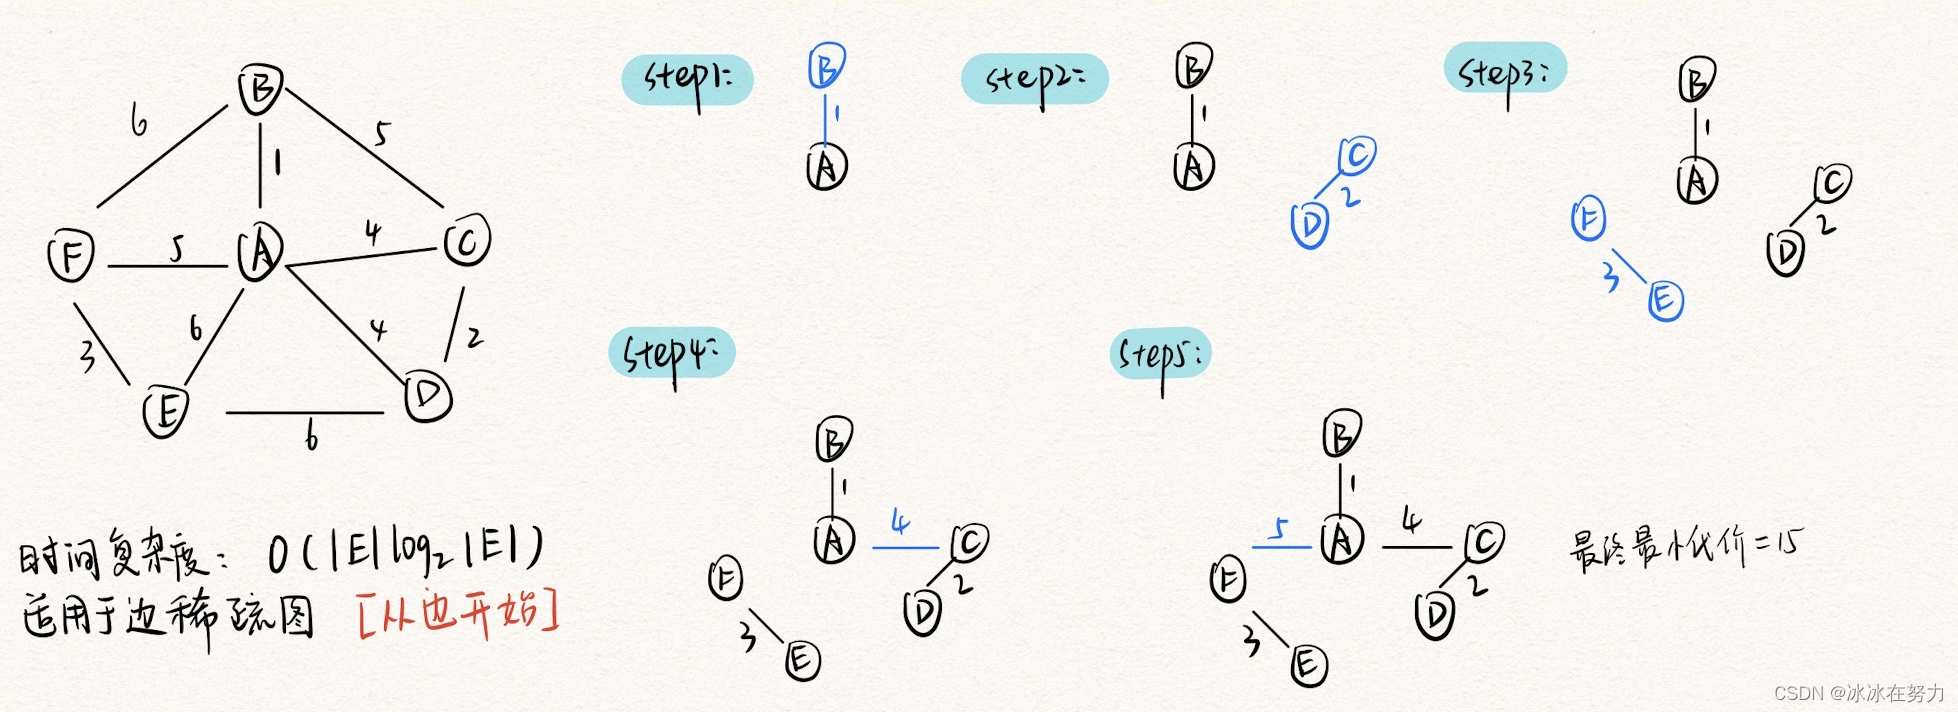 B
6
5
1
F
5
A
4
C
3
6
4
2
E
D
6
时间复杂度： O(|E|log₂|E|)
适用于边稀疏图 [从边开始]
step1:
B
1
A
step2:
B
1
A
C
2
D
step3:
B
1
A
C
2
D
F
3
E
step4:
B
1
A
4
C
2
D
F
3
E
step5:
B
1
5
A
4
C
2
D
F
3
E
最终最小代价=15
CSDN @冰冰在努力